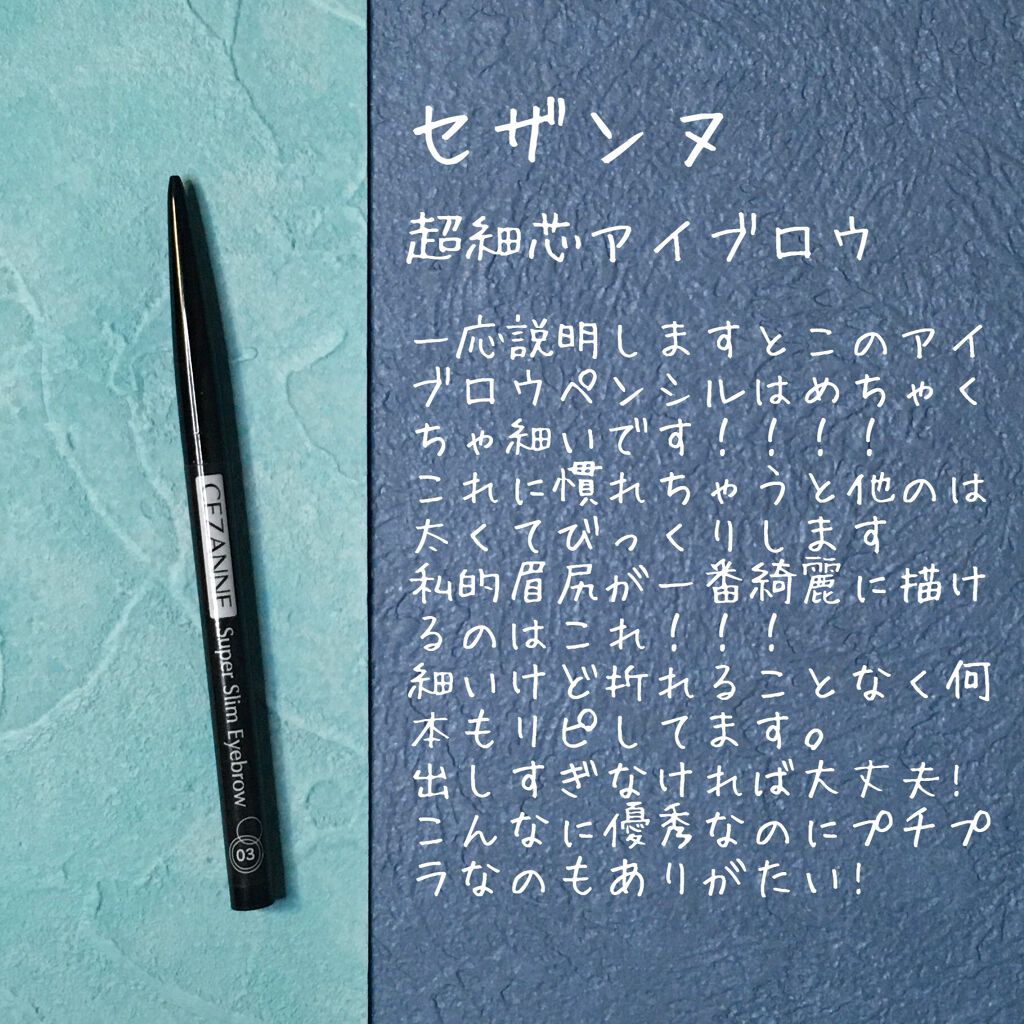 セザンヌ
超細芯アイブロウ
一応説明しますとこのアイ
ブロウペンシルはめちゃく
ちゃ細いです！！！！
これに慣れちゃうと他のは
太くてびっくりします
私的眉尻が一番綺麗に描け
るのはこれ！！！
細いけど折れることなく何
本もリピしてます。
出しすぎなければ大丈夫！
こんなに優秀なのにプチプ
ラなのもありがたい！
CEZANNE
Super Slim Eyebrow
03